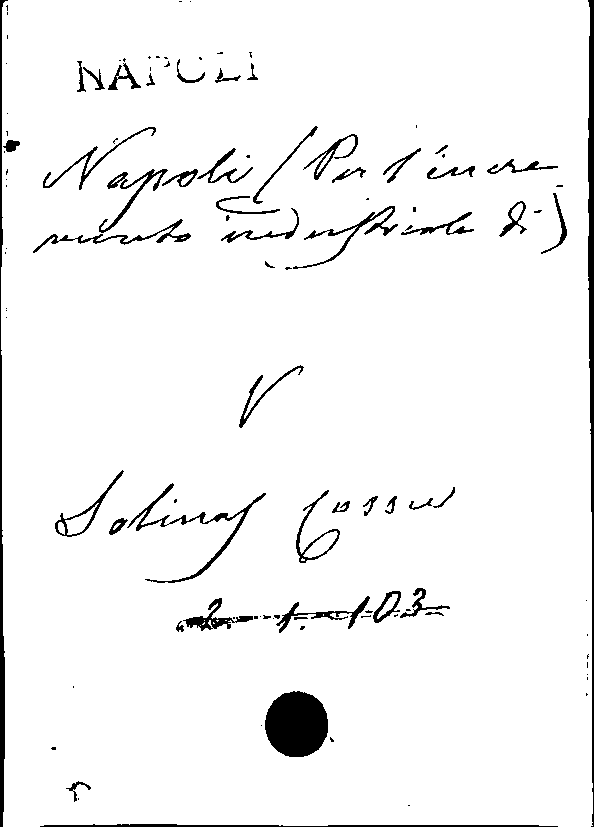 NAPOLI
Napoli (Per l'incre
mento industriale di)
V
Solinas Cossu
2. 1. 103